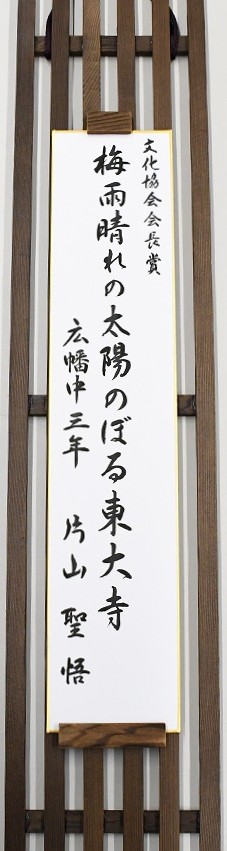 文化協会会長賞
梅雨晴れの太陽のぼる東大寺
広幡中三年 片山聖悟